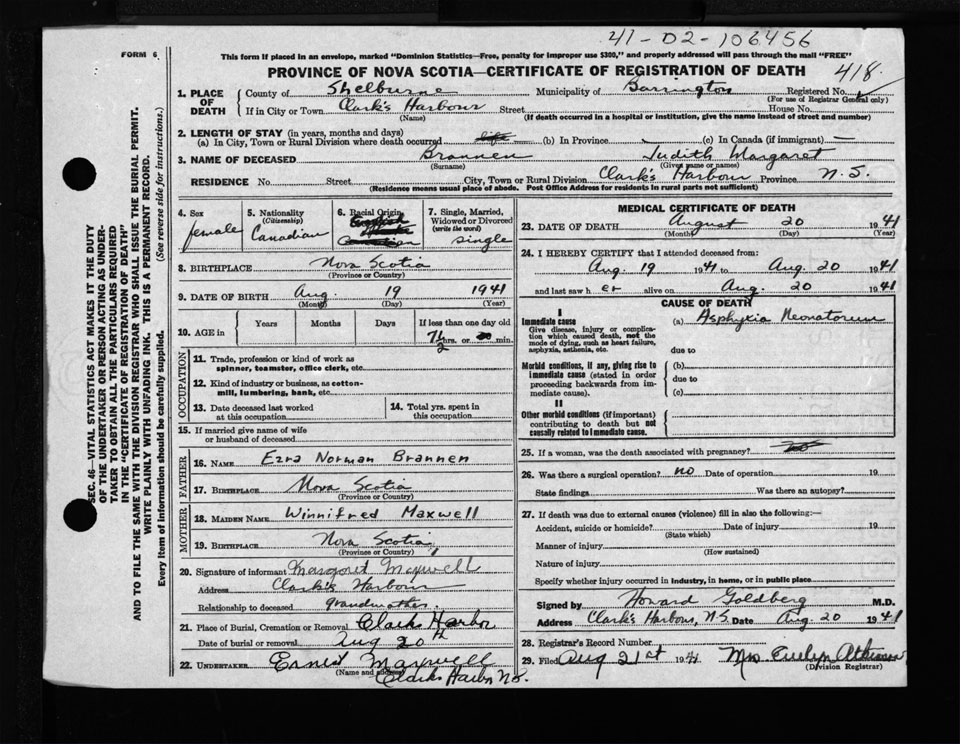 41-02-106456
FORM 6
This form if placed in an envelope, marked "Dominion Statistics—Free, penalty for improper use $300," and properly addressed will pass through the mail "FREE"
PROVINCE OF NOVA SCOTIA—CERTIFICATE OF REGISTRATION OF DEATH
418
1. PLACE OF DEATH
County of Shelburne Municipality of Barrington Registered No.
(For use of Registrar General only)
If in City or Town Clark's Harbour Street House No.
(Name) (If death occurred in a hospital or institution, give the name instead of street and number)
2. LENGTH OF STAY (in years, months and days)
(a) In City, Town or Rural Division where death occurred life (b) In Province — (c) In Canada (if immigrant) —
3. NAME OF DECEASED Brannen Judith Margaret
(Surname) (Given name or names)
RESIDENCE No. Street City, Town or Rural Division Clark's Harbour Province N.S.
(Residence means usual place of abode. Post Office Address for residents in rural parts not sufficient)
4. Sex
female
5. Nationality
(Citizenship)
Canadian
6. Racial Origin
English
7. Single, Married, Widowed or Divorced
(write the word)
single
8. BIRTHPLACE Nova Scotia
(Province or Country)
9. DATE OF BIRTH Aug. 19 1941
(Month) (Day) (Year)
10. AGE in
Years Months Days If less than one day old
7½ hrs. or min.
OCCUPATION
11. Trade, profession or kind of work as spinner, teamster, office clerk, etc.
12. Kind of industry or business, as cotton-mill, lumbering, bank, etc.
13. Date deceased last worked at this occupation
14. Total yrs. spent in this occupation
15. If married give name of wife or husband of deceased
FATHER
16. NAME Ezra Norman Brannen
17. BIRTHPLACE Nova Scotia
(Province or Country)
MOTHER
18. MAIDEN NAME Winnifred Maxwell
19. BIRTHPLACE Nova Scotia
(Province or Country)
20. Signature of informant Margaret Maxwell
Address Clark's Harbour
Relationship to deceased grandmother
21. Place of Burial, Cremation or Removal Clarks Harbor
Date of burial or removal Aug 20th
22. UNDERTAKER Ernest Maxwell
(Name and address) Clarks Harbr N.S.
MEDICAL CERTIFICATE OF DEATH
23. DATE OF DEATH August 20 1941
(Month) (Day) (Year)
24. I HEREBY CERTIFY that I attended deceased from:
Aug. 19 1941 to Aug. 20 1941
and last saw her alive on Aug. 20 1941
CAUSE OF DEATH
I
Immediate cause
Give disease, injury or complication which caused death, not the mode of dying, such as heart failure, asphyxia, asthenia, etc.
(a) Asphyxia Neonatorum
due to
Morbid conditions, if any, giving rise to immediate cause (stated in order proceeding backwards from immediate cause).
(b)
due to
(c)
II
Other morbid conditions (if important) contributing to death but not causally related to immediate cause.
25. If a woman, was the death associated with pregnancy?
26. Was there a surgical operation? no Date of operation 19
State findings Was there an autopsy?
27. If death was due to external causes (violence) fill in also the following:—
Accident, suicide or homicide? Date of injury 19
(State which)
Manner of injury
(How sustained)
Nature of injury
Specify whether injury occurred in industry, in home, or in public place
Signed by Howard Goldberg M.D.
Address Clark's Harbour, N.S. Date Aug. 20 1941
28. Registrar's Record Number
29. Filed Aug 21st 1941 Mrs Evelyn Atkinson
(Division Registrar)
SEC. 46—VITAL STATISTICS ACT MAKES IT THE DUTY
OF THE UNDERTAKER OR PERSON ACTING AS UNDER-
TAKER TO OBTAIN ALL THE PARTICULARS REQUIRED
IN THE "CERTIFICATE OF REGISTRATION OF DEATH"
AND TO FILE THE SAME WITH THE DIVISION REGISTRAR WHO SHALL ISSUE THE BURIAL PERMIT.
WRITE PLAINLY WITH UNFADING INK. THIS IS A PERMANENT RECORD.
Every item of information should be carefully supplied. (See reverse side for instructions.)